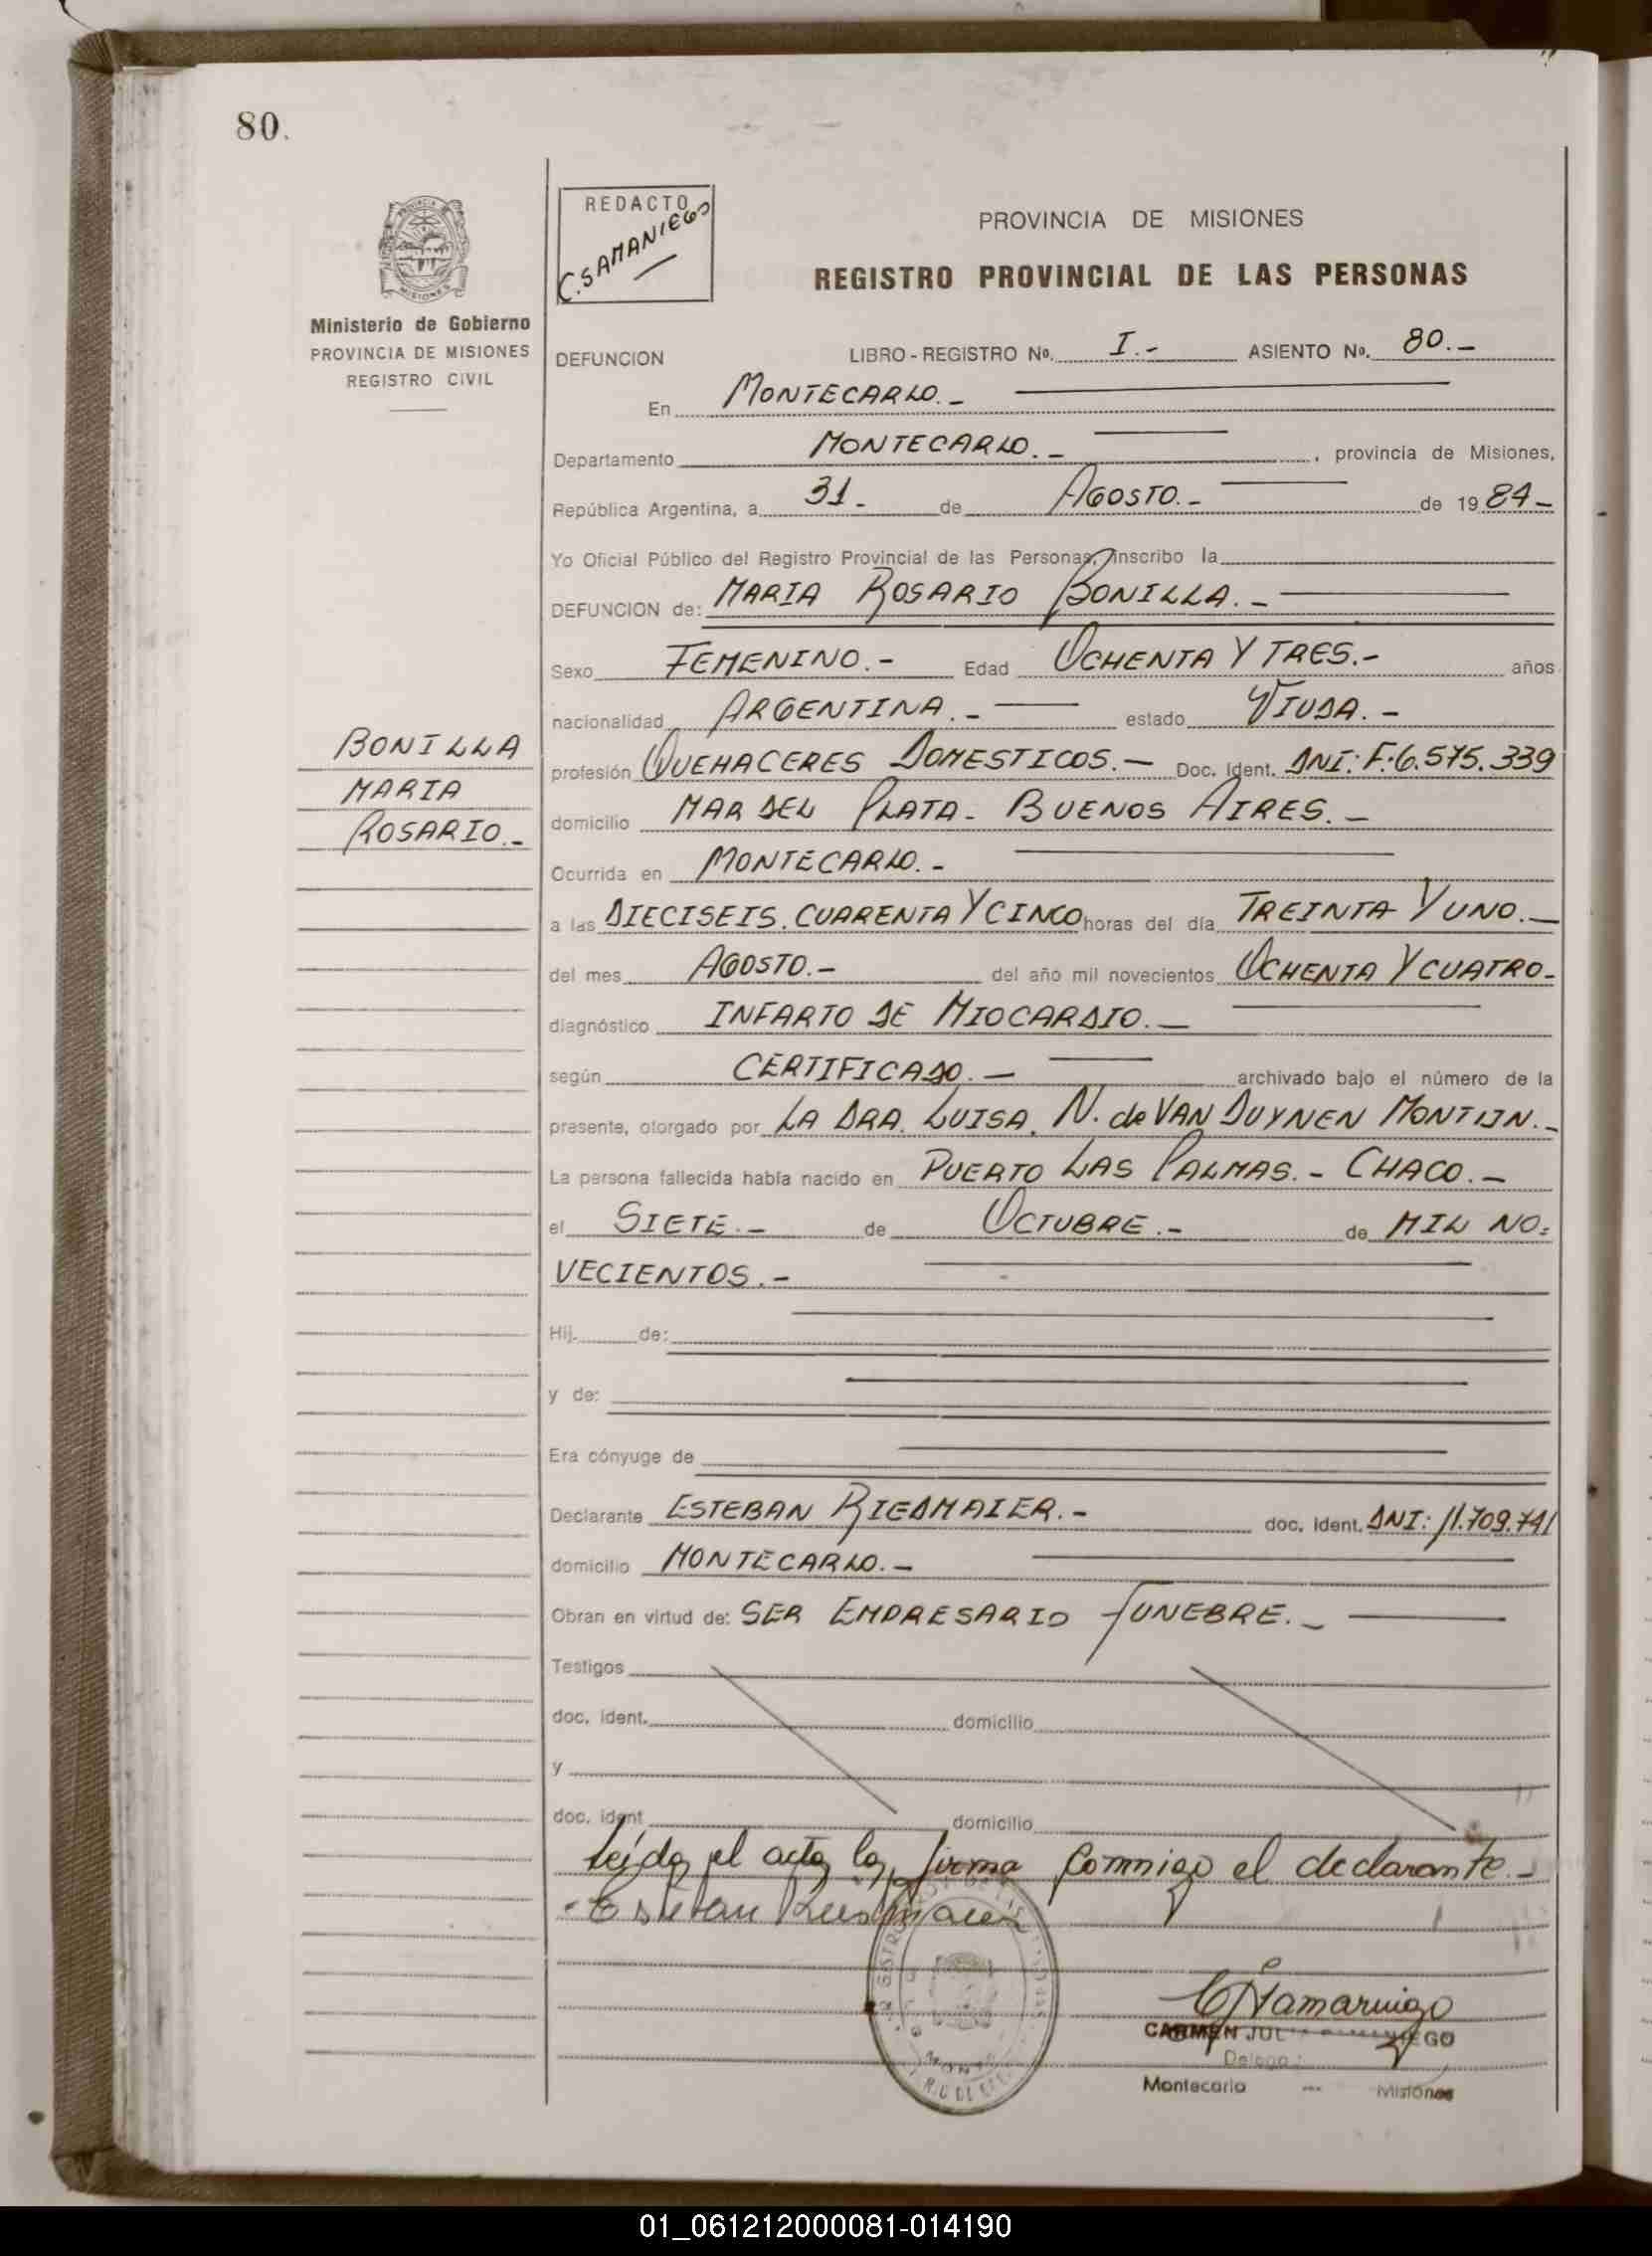 80.
PROVINCIA DE MISIONES
REGISTRO PROVINCIAL DE LAS PERSONAS
REDACTO
C. SAMANIEGO
MISIONES
Ministerio de Gobierno
PROVINCIA DE MISIONES
REGISTRO CIVIL
BONILLA
MARIA
ROSARIO.-
DEFUNCION LIBRO-REGISTRO Nº. I.- ASIENTO Nº. 80.-
En MONTECARLO.-
Departamento MONTECARLO.- , provincia de Misiones,
República Argentina, a 31- de AGOSTO.- de 19 84-
Yo Oficial Público del Registro Provincial de las Personas, inscribo la
DEFUNCION de: MARIA ROSARIO BONILLA.-
Sexo FEMENINO.- Edad OCHENTA Y TRES.- años
nacionalidad ARGENTINA.- estado VIUDA.-
profesión QUEHACERES DOMESTICOS.- Doc. Ident. DNI: F:6.575.339
domicilio MAR DEL PLATA- BUENOS AIRES.-
Ocurrida en MONTECARLO.-
a las DIECISEIS. CUARENTA Y CINCO horas del día TREINTA Y UNO.-
del mes AGOSTO.- del año mil novecientos OCHENTA Y CUATRO-
diagnóstico INFARTO DE MIOCARDIO.-
según CERTIFICADO.- archivado bajo el número de la
presente, otorgado por LA DRA. LUISA. N. de VAN DUYNEN MONTIJN.-
La persona fallecida había nacido en PUERTO LAS PALMAS.- CHACO.-
el SIETE.- de OCTUBRE.- de MIL NO=
VECIENTOS.-
Hij. de:
y de:
Era cónyuge de
Declarante ESTEBAN RIEDMAIER.- doc. Ident. DNI: 11.709.741
domicilio MONTECARLO.-
Obran en virtud de: SER EMPRESARIO FUNEBRE.-
Testigos
doc. ident. domicilio
y
doc. ident domicilio
Leída el acta la firma conmigo el declarante.-
Esteban Riedmaier
CSamaniego
CARMEN JUL NIEGO
Delega
Montecarlo --- Misiones
01_061212000081-014190